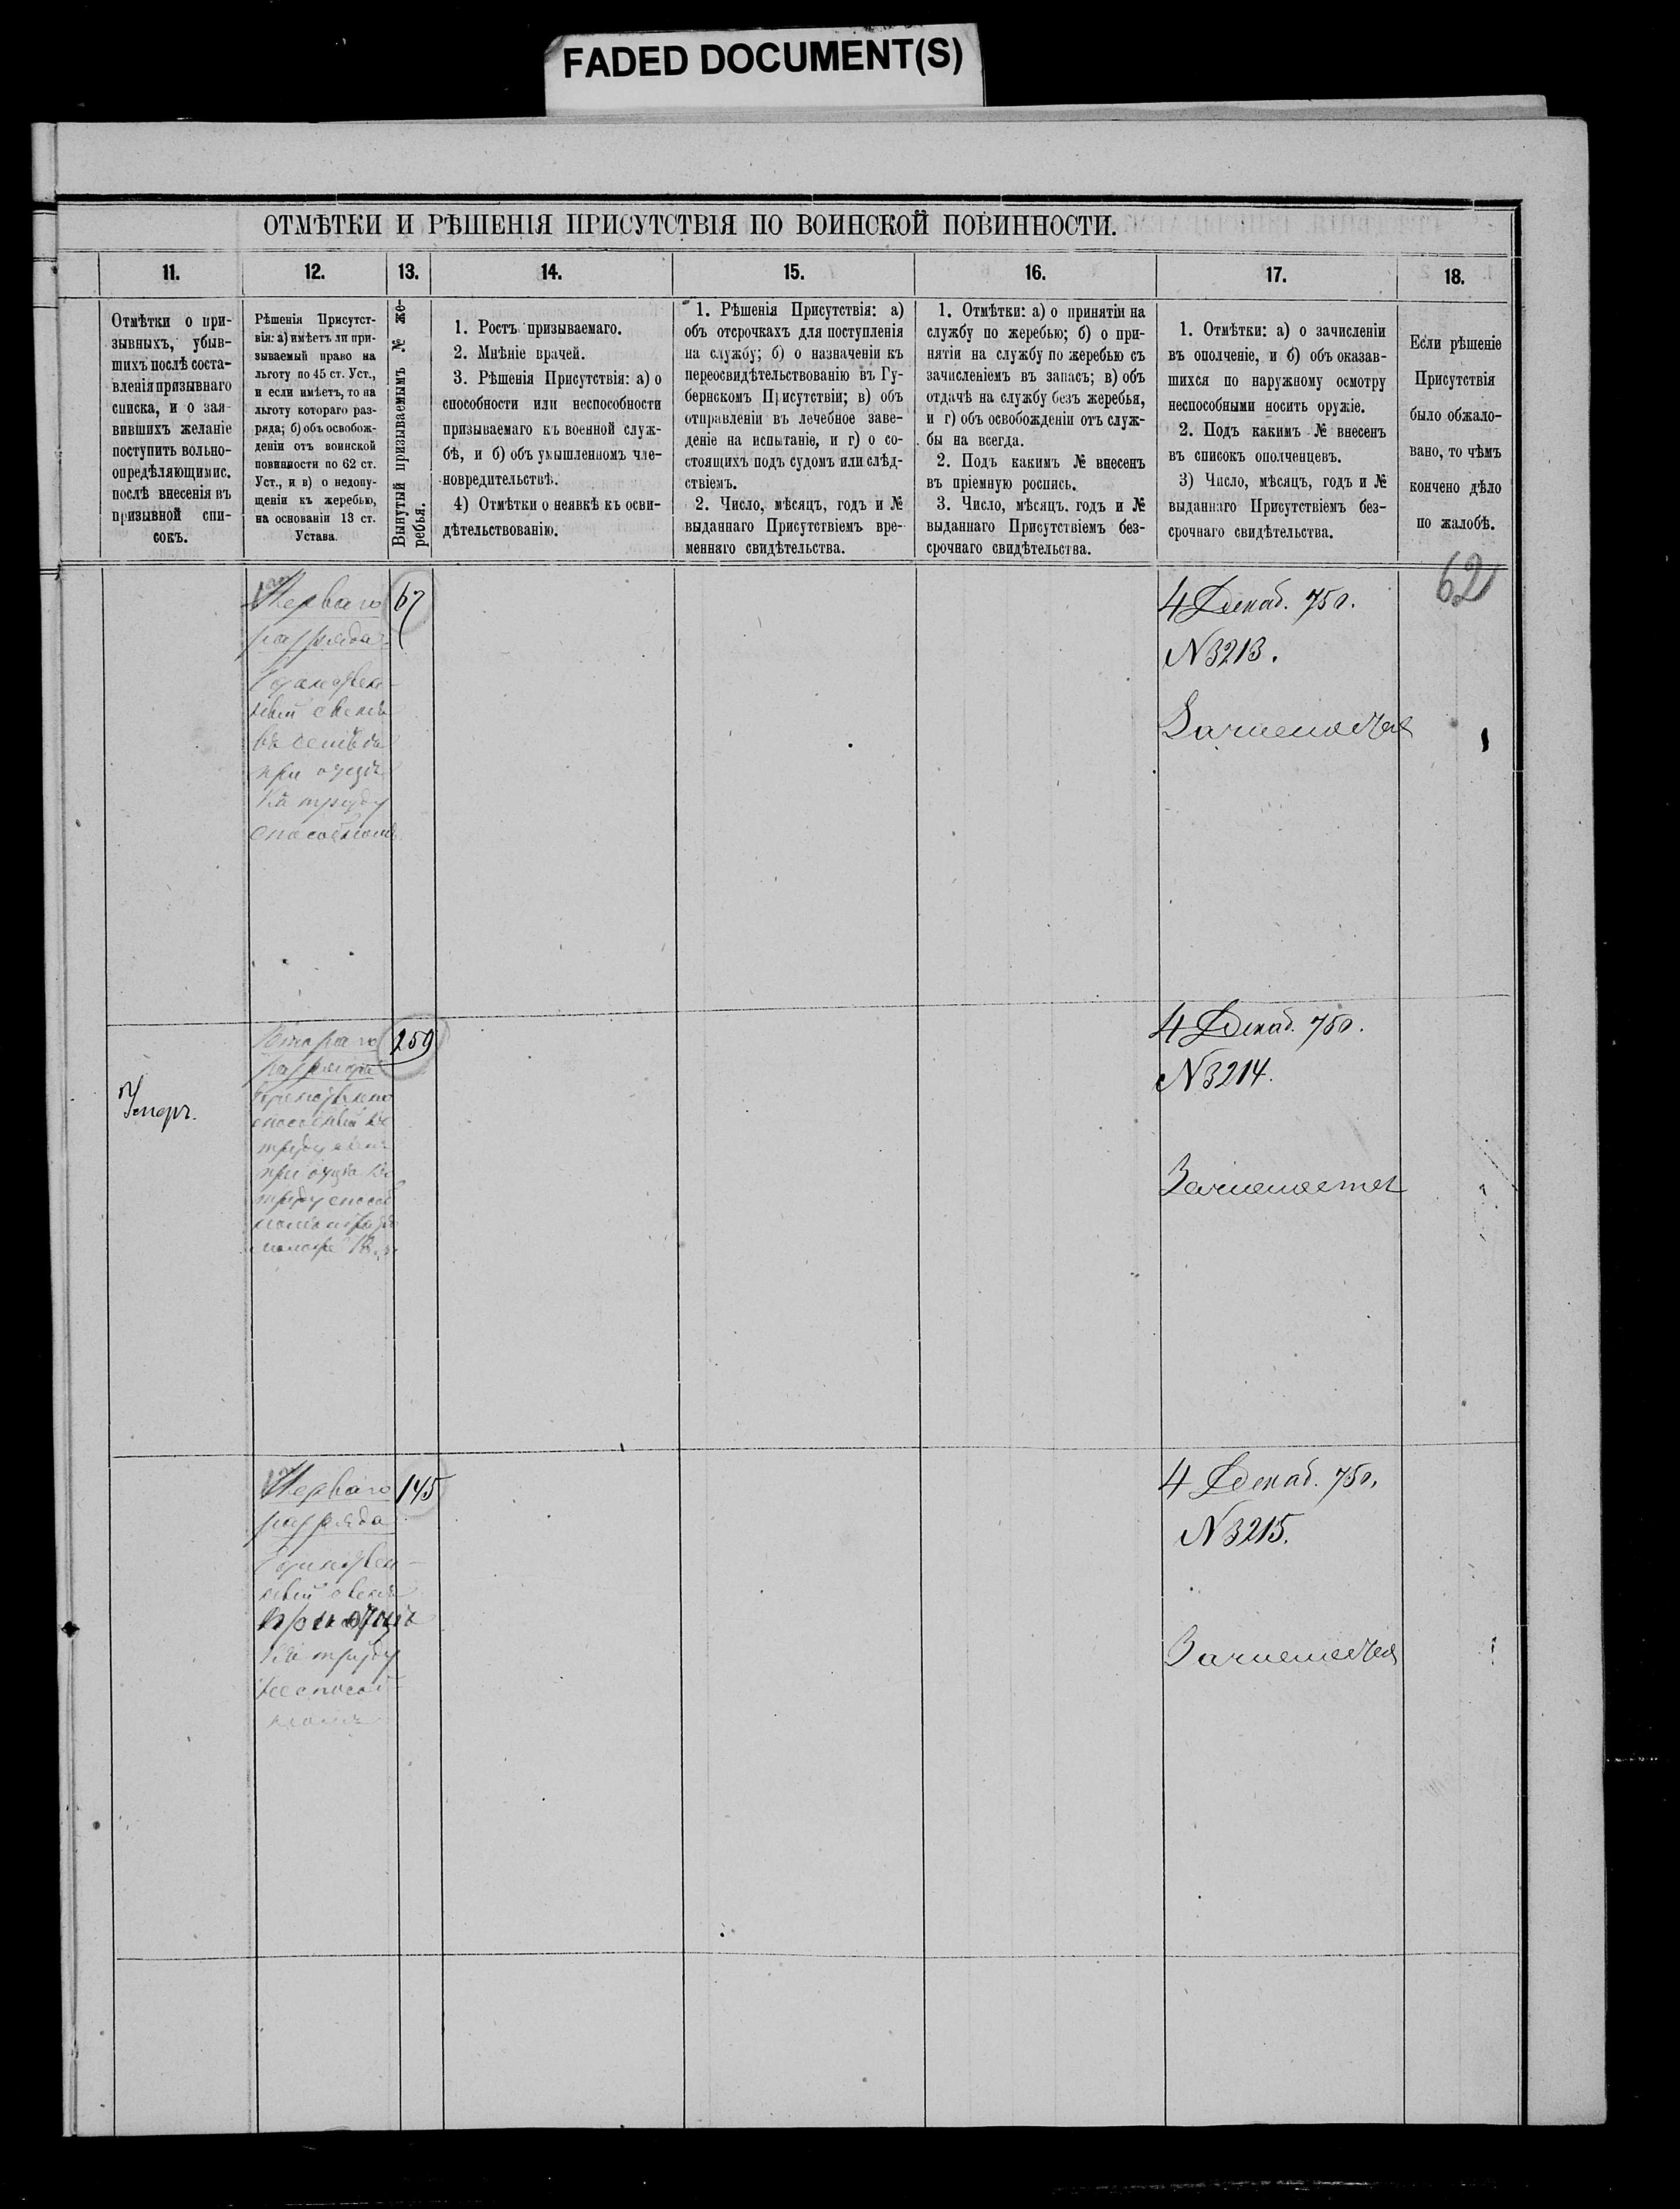 FADED DOCUMENT(S)
ОТМѢТКИ И РѢШЕНІЯ ПРИСУТСТВІЯ ПО ВОИНСКОЙ ПОВИННОСТИ.
11.
12.
13.
14.
15.
16.
17.
18.
Отмѣтки о при-
зывныхъ, убыв-
шихъ послѣ соста-
вленія призывнаго
списка, и о зая-
вившихъ желаніе
поступить вольно-
опредѣляющимис.
послѣ внесенія въ
призывной спи-
сокъ.
Рѣшенія Присутст-
вія: а) имѣетъ ли при-
зываемый право на
льготу по 45 ст. Уст.,
и если имѣетъ, то на
льготу котораго раз-
ряда; б) объ освобож-
деніи отъ воинской
повинности по 62 ст.
Уст., и в) о недопу-
щеніи къ жеребью,
на основаніи 13 ст.
Устава.
Вынутый призываемымъ № же-
ребья.
1. Ростъ призываемаго.
2. Мнѣніе врачей.
3. Рѣшенія Присутствія: а) о
способности или неспособности
призываемаго къ военной служ-
бѣ, и б) объ умышленномъ чле-
новредительствѣ.
4) Отмѣтки о неявкѣ къ осви-
дѣтельствованію.
1. Рѣшенія Присутствія: а)
объ отсрочкахъ для поступленія
на службу; б) о назначеніи къ
переосвидѣтельствованію въ Гу-
бернскомъ Присутствіи; в) объ
отправленіи въ лечебное заве-
деніе на испытаніе, и г) о со-
стоящихъ подъ судомъ или слѣд-
ствіемъ.
2. Число, мѣсяцъ, годъ и №
выданнаго Присутствіемъ вре-
меннаго свидѣтельства.
1. Отмѣтки: а) о принятіи на
службу по жеребью; б) о при-
нятіи на службу по жеребью съ
зачисленіемъ въ запасъ; в) объ
отдачѣ на службу безъ жеребья,
и г) объ освобожденіи отъ служ-
бы на всегда.
2. Подъ какимъ № внесенъ
въ пріемную роспись.
3. Число, мѣсяцъ. годъ и №
выданнаго Присутствіемъ без-
срочнаго свидѣтельства.
1. Отмѣтки: а) о зачисленіи
въ ополченіе, и б) объ оказав-
шихся по наружному осмотру
неспособными носить оружіе.
2. Подъ какимъ № внесенъ
въ списокъ ополченцевъ.
3) Число, мѣсяцъ, годъ и №
выданнаго Присутствіемъ без-
срочнаго свидѣтельства.
Если рѣшеніе
Присутствія
было обжало-
вано, то чѣмъ
кончено дѣло
по жалобѣ.
62
Перваго
разряда
Единствен-
ный сынъ
въ семьѣ
при отцѣ
къ труду
способномъ
67
4 Декаб. 75г.
N 3213.
Втораго
разряда
способный къ
труду сынъ
при отцѣ къ
труду способ
259
4 Декаб. 75г.
N 3214.
Перваго
разряда
Единствен-
ный сынъ
при отцѣ
къ труду
неспособ-
номъ
145
4 Декаб. 75г.
N 3215.